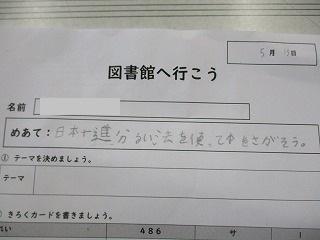 5月13日
図書館へ行こう
名前
めあて：日本十進分るい法を使って本をさがそう。
① テーマを決めましょう。
テーマ
① きろくカードを書きましょう。
486
サ